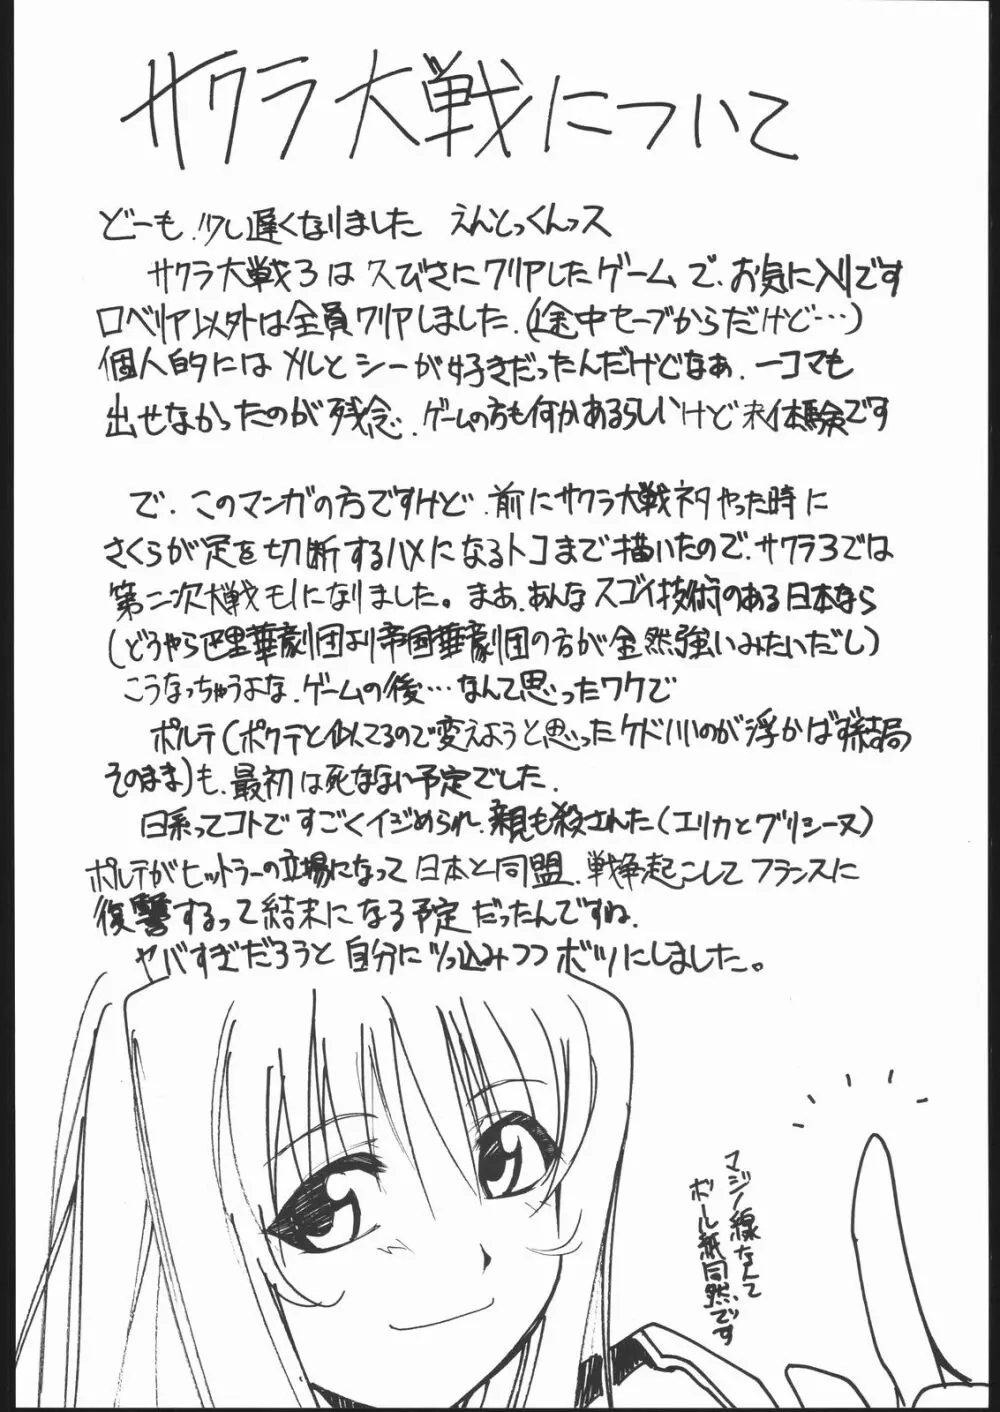 サクラ大戦について
どーも.少し遅くなりました えんとっくんっス
サクラ大戦3は久びさにクリアしたゲームで、お気に入りです
ロベリア以外は全員クリアしました.(途中セーブからだけど…)
個人的にはメルとシーが好きだったんだけどなぁ.一コマも
出せなかったのが残念.ゲームの方も何かあるらしいけど未体験です
で.このマンガの方ですけど.前にサクラ大戦ネタやった時に
さくらが足を切断するハメになるトコまで描いたので、サクラ3では
第二次大戦モノになりました。まぁ、あんなスゴイ技術のある日本なら
(どうやら巴里華劇団より帝国華劇団の方が全然強いみたいだし)
こうなっちゃうよな.ゲームの後…なんて思ったワケで
ポルテ(ポクテと似てるので変えようと思ったケドいいのが浮かばず結局
そのまま)も、最初は死なない予定でした.
日系ってコトですごくイジめられ、親も殺された(エリカとグリシーヌ)
ポルテがヒットラーの立場になって日本と同盟.戦争起こしてフランスに
復讐するって結末になる予定だったんですね.
ヤバすぎだろうと自分にツっ込みつつボツにしました。
マジノ線なんて
ボール紙同然です